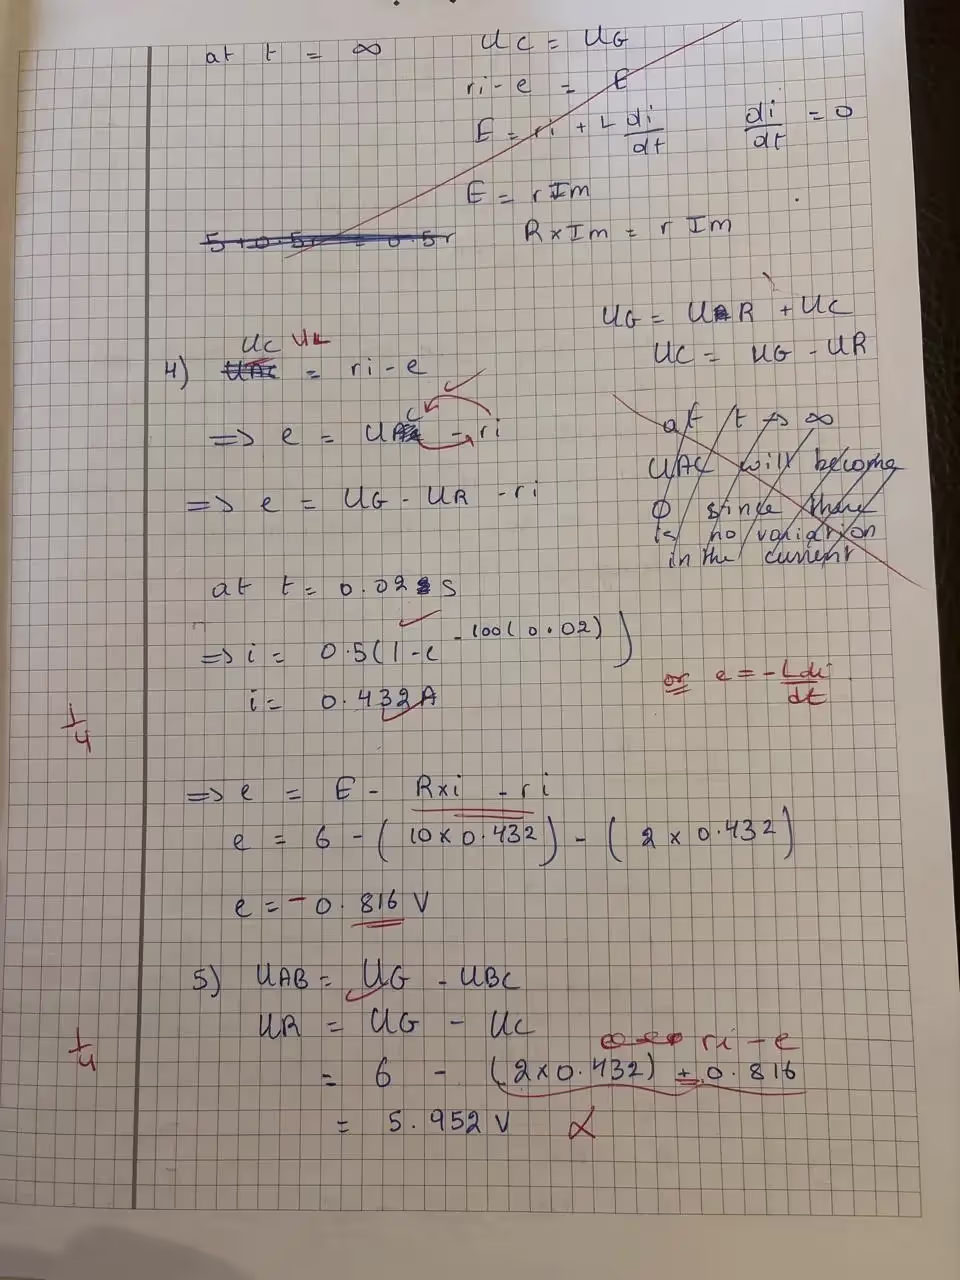 at t = ∞
UC = UG
ri - e = E
E = ri + L di/dt    di/dt = 0
E = r Im
5 + 0.5r = 0.5r
R x Im = r Im
UG = UR + UC
UC = UG - UR
UC UL
4) UAC = ri - e
=> e = UC - ri
=> e = UG - UR - ri
at t → ∞
UAC will become
0 since there
is no variation
in the current
at t = 0.02 s
=> i = 0.5(1 - e^-100(0.02))
i = 0.432 A
or e = -Ldi/dt
1/4
=> e = E - Rxi - ri
e = 6 - (10 x 0.432) - (2 x 0.432)
e = - 0.816 V
5) UAB = UG - UBC
UR = UG - UC
ri - e
1/4
= 6 - (2x0.432) + 0.816
= 5.952 V